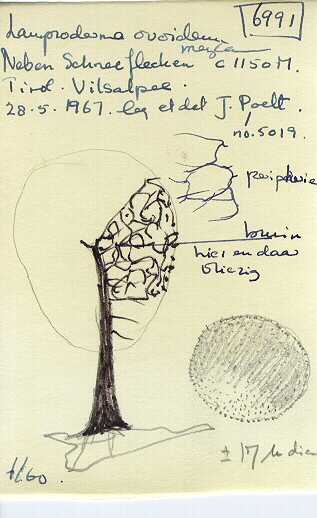 6991
Lamproderma ovoideum
meylan
Neben Schneeflecken c 1150 M.
Tirol. Vilsalpsee.
28.5.1967. leg et det J. Poelt.
no. 5019.
periferie
bruin
hier en daar
vliezig
± 17 µ diam